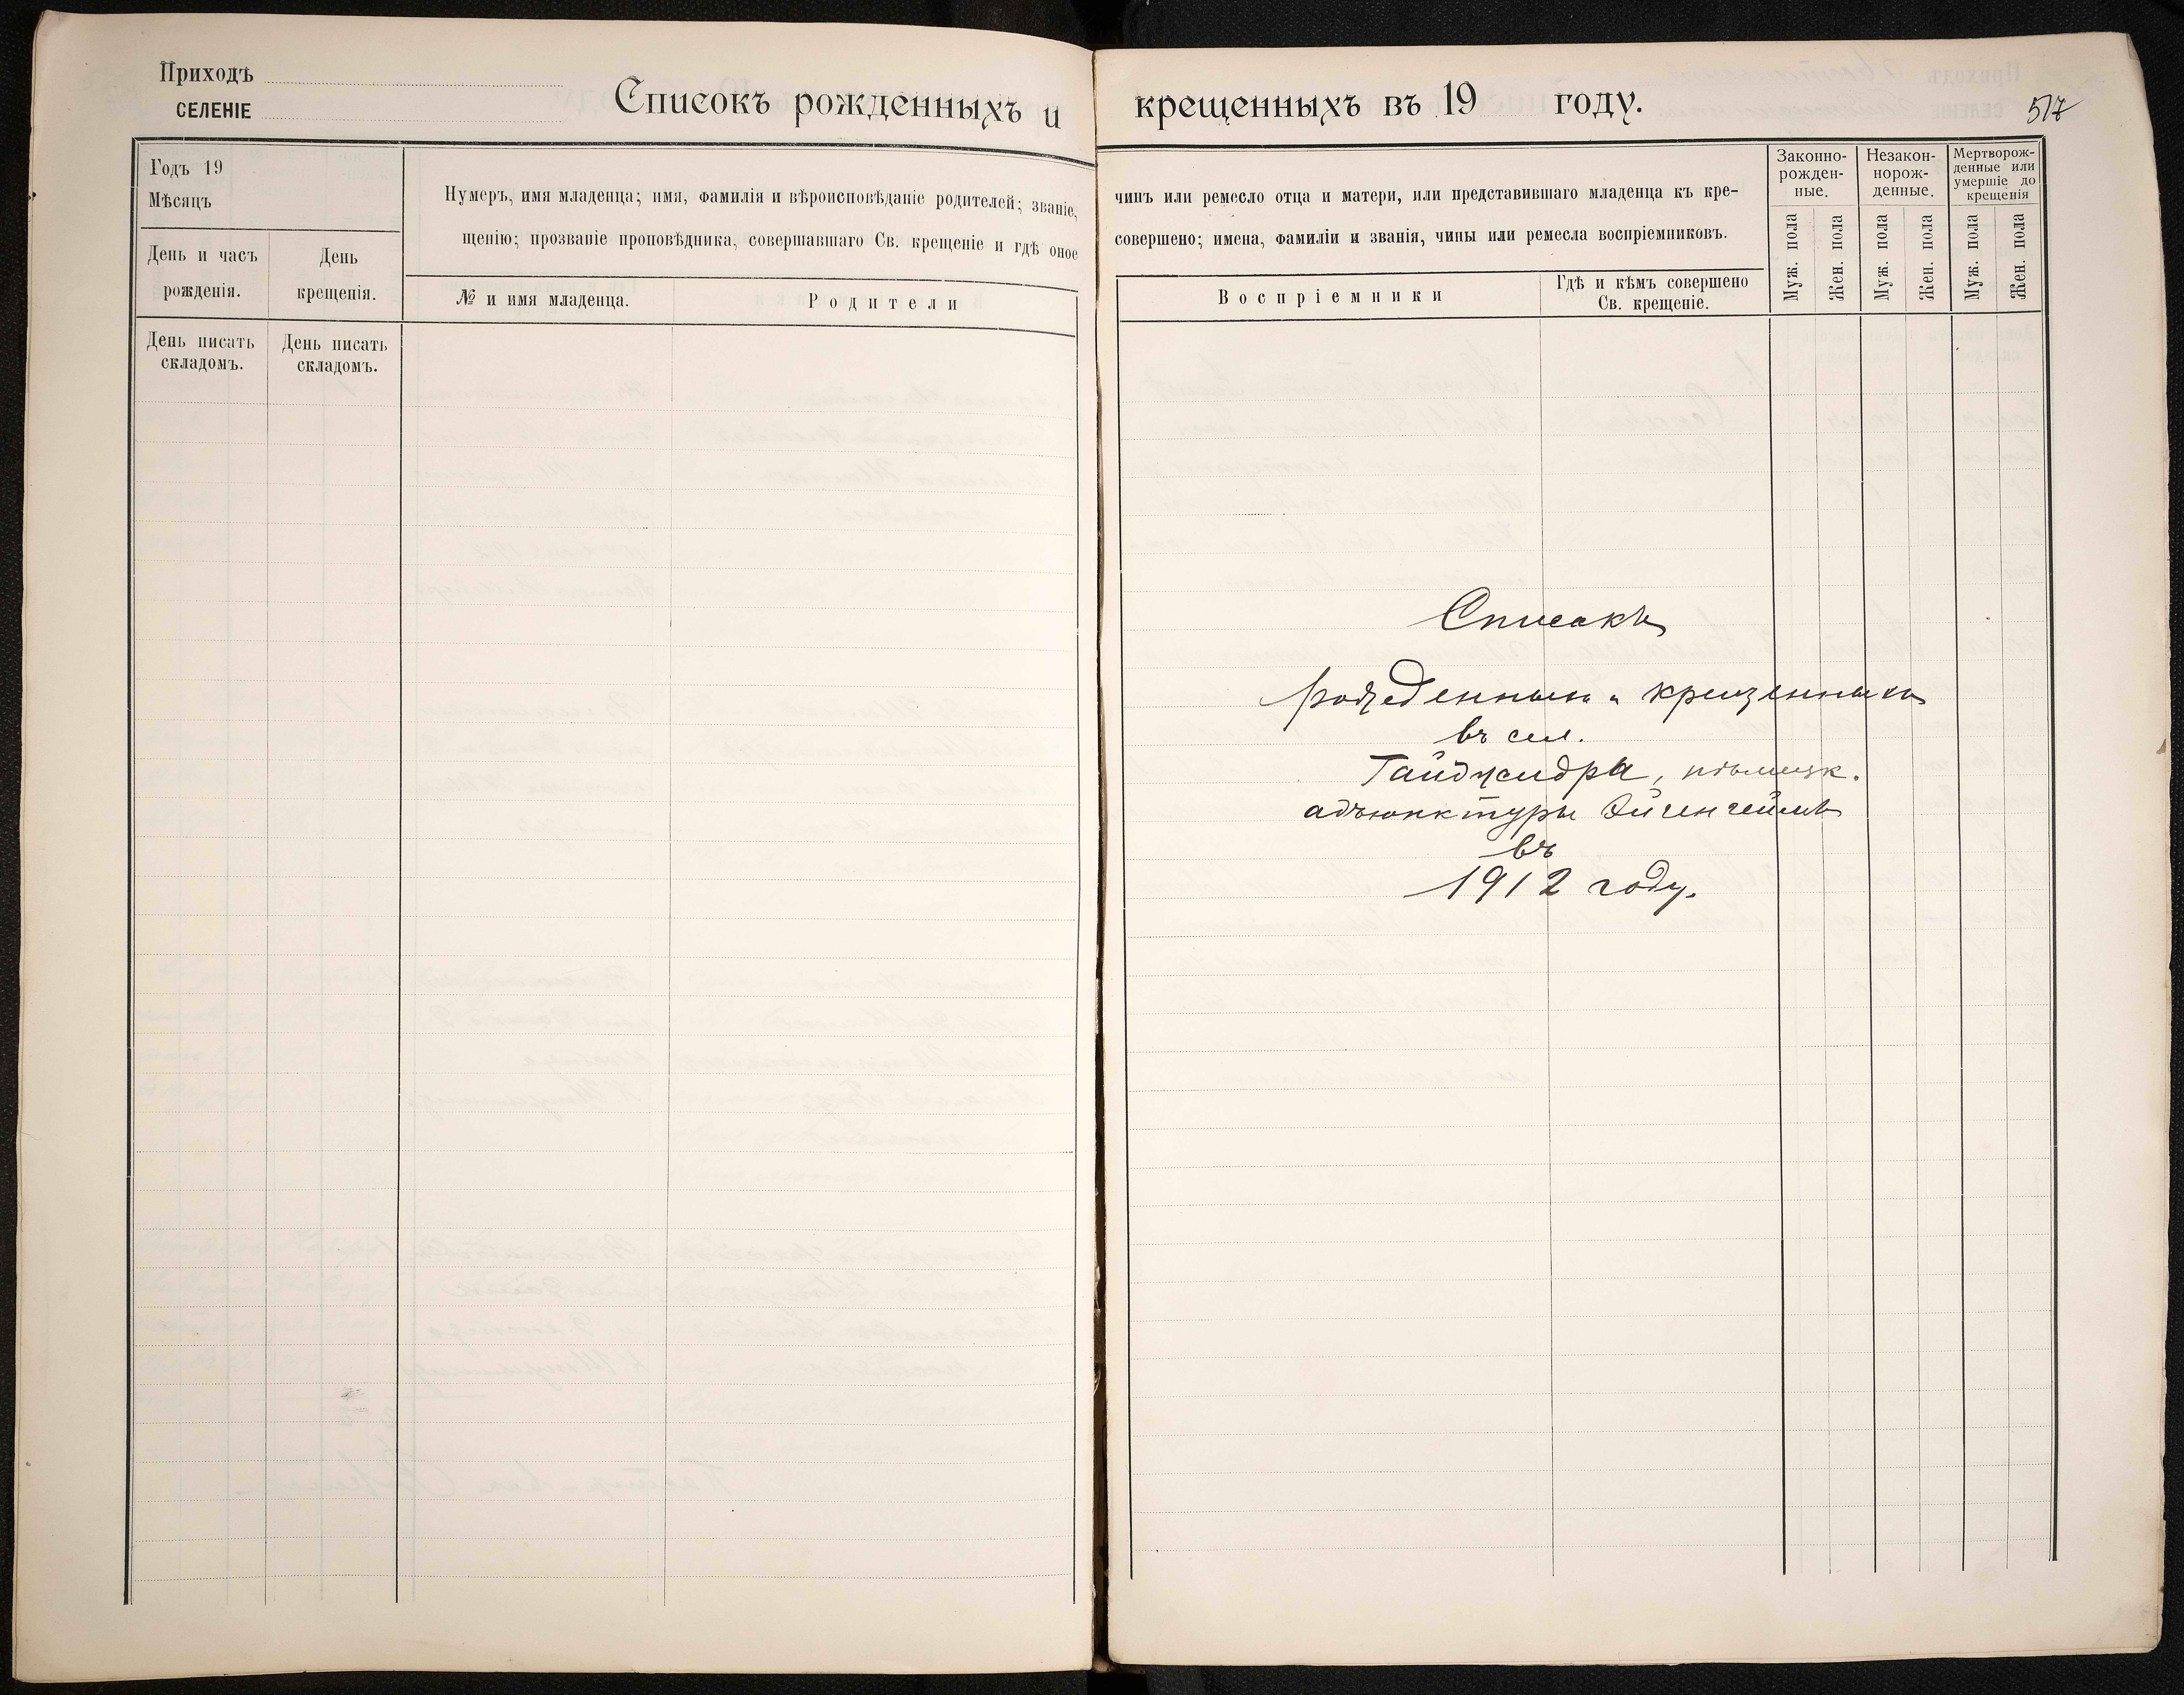 Приходъ
СЕЛЕНІЕ
Списокъ рожденныхъ и
Годъ 19
Мѣсяцъ
День и часъ
рожденія.
День
крещенія.
Нумеръ, имя младенца; имя, фамилія и вѣроисповѣданіе родителей; званіе,
щенію; прозваніе проповѣдника, совершавшаго Св. крещеніе и гдѣ оное
№ и имя младенца.
Родители
День писать
складомъ.
День писать
складомъ.
крещенныхъ въ 19 году.
517
чинъ или ремесло отца и матери, или представившаго младенца къ кре-
совершено; имена, фамиліи и званія, чины или ремесла воспріемниковъ.
Воспріемники
Гдѣ и кѣмъ совершено
Св. крещеніе.
Законно-
рожден-
ные.
Незакон-
норож-
денные.
Мертворож-
денные или
умершіе до
крещенія
Муж. пола
Жен. пола
Муж. пола
Жен. пола
Муж. пола
Жен. пола
Списокъ
рожденныхъ и крещенныхъ
въ сел.
Гайджендра, нѣмецк.
адъюнктуры
въ
1912 году.